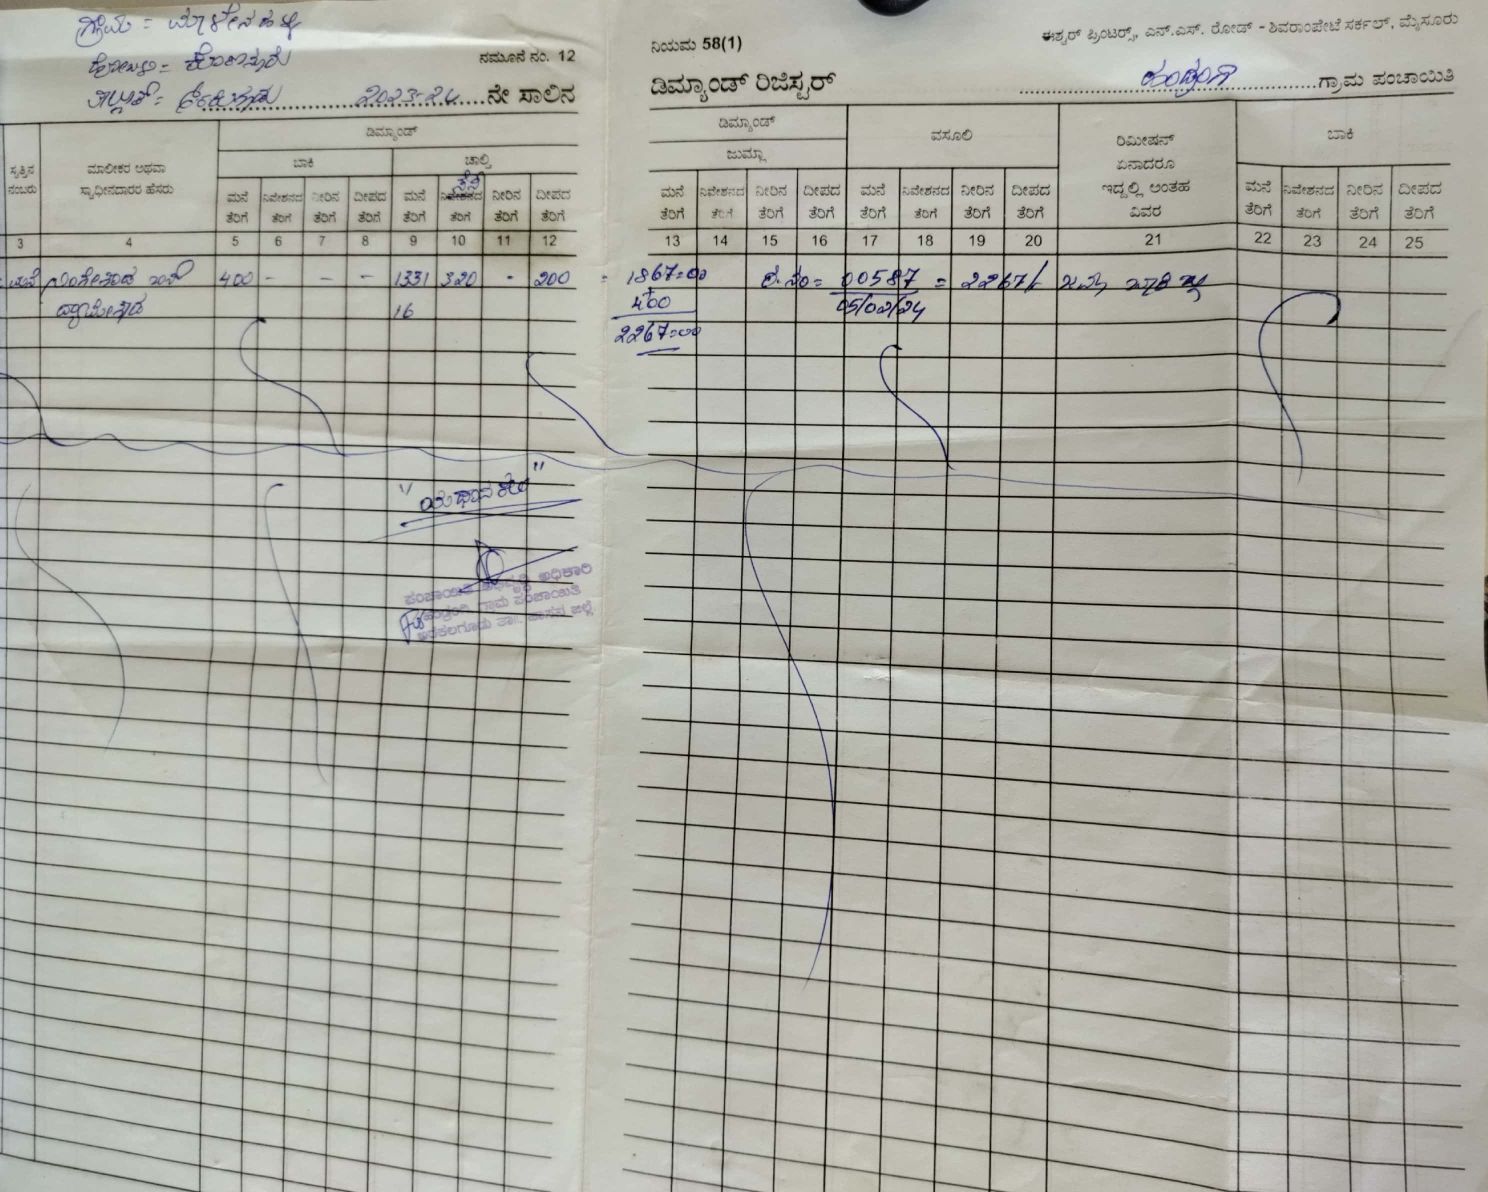 ಗ್ರಾಮ =
ಹೋಬಳಿ =
ನಮೂನೆ ನಂ. 12
2023-24 ನೇ ಸಾಲಿನ
ನಿಯಮ 58(1)
ಈಶ್ವರ್ ಪ್ರಿಂಟರ್ಸ್, ಎನ್.ಎಸ್. ರೋಡ್ - ಶಿವರಾಂಪೇಟೆ ಸರ್ಕಲ್, ಮೈಸೂರು
ಡಿಮ್ಯಾಂಡ್ ರಿಜಿಸ್ಟರ್
ಹಂಡ್ರಂಗಿ ಗ್ರಾಮ ಪಂಚಾಯಿತಿ
ಸ್ವತ್ತಿನ ನಂಬರು
ಮಾಲೀಕರ ಅಥವಾ ಸ್ವಾಧೀನದಾರರ ಹೆಸರು
ಡಿಮ್ಯಾಂಡ್
ಬಾಕಿ
ಚಾಲ್ತಿ
ಮನೆ ತೆರಿಗೆ ನಿವೇಶನದ ತೆರಿಗೆ ನೀರಿನ ತೆರಿಗೆ ದೀಪದ ತೆರಿಗೆ ಮನೆ ತೆರಿಗೆ ನಿವೇಶನದ ತೆರಿಗೆ ನೀರಿನ ತೆರಿಗೆ ದೀಪದ ತೆರಿಗೆ
ಡಿಮ್ಯಾಂಡ್
ಜುಮ್ಲಾ
ವಸೂಲಿ
ರಿಮೀಷನ್ ಏನಾದರೂ ಇದ್ದಲ್ಲಿ ಅಂತಹ ವಿವರ
ಬಾಕಿ
ಮನೆ ತೆರಿಗೆ ನಿವೇಶನದ ತೆರಿಗೆ ನೀರಿನ ತೆರಿಗೆ ದೀಪದ ತೆರಿಗೆ ಮನೆ ತೆರಿಗೆ ನಿವೇಶನದ ತೆರಿಗೆ ನೀರಿನ ತೆರಿಗೆ ದೀಪದ ತೆರಿಗೆ
ಮನೆ ತೆರಿಗೆ ನಿವೇಶನದ ತೆರಿಗೆ ನೀರಿನ ತೆರಿಗೆ ದೀಪದ ತೆರಿಗೆ
3 4 5 6 7 8 9 10 11 12 13 14 15 16 17 18 19 20 21 22 23 24 25
400 - - - 1331 320 - 200 = 1867=00 ರ.ನಂ= 00587 = 2267/-
16 + 400 05/02/24
2267=00
"ಯಥಾನಕಲು"
ಪಂಚಾಯಿತಿ ಅಭಿವೃದ್ಧಿ ಅಧಿಕಾರಿ
ಹಂಡ್ರಂಗಿ ಗ್ರಾಮ ಪಂಚಾಯಿತಿ
ಅರಕಲಗೂಡು ತಾ॥ ಹಾಸನ ಜಿಲ್ಲೆ